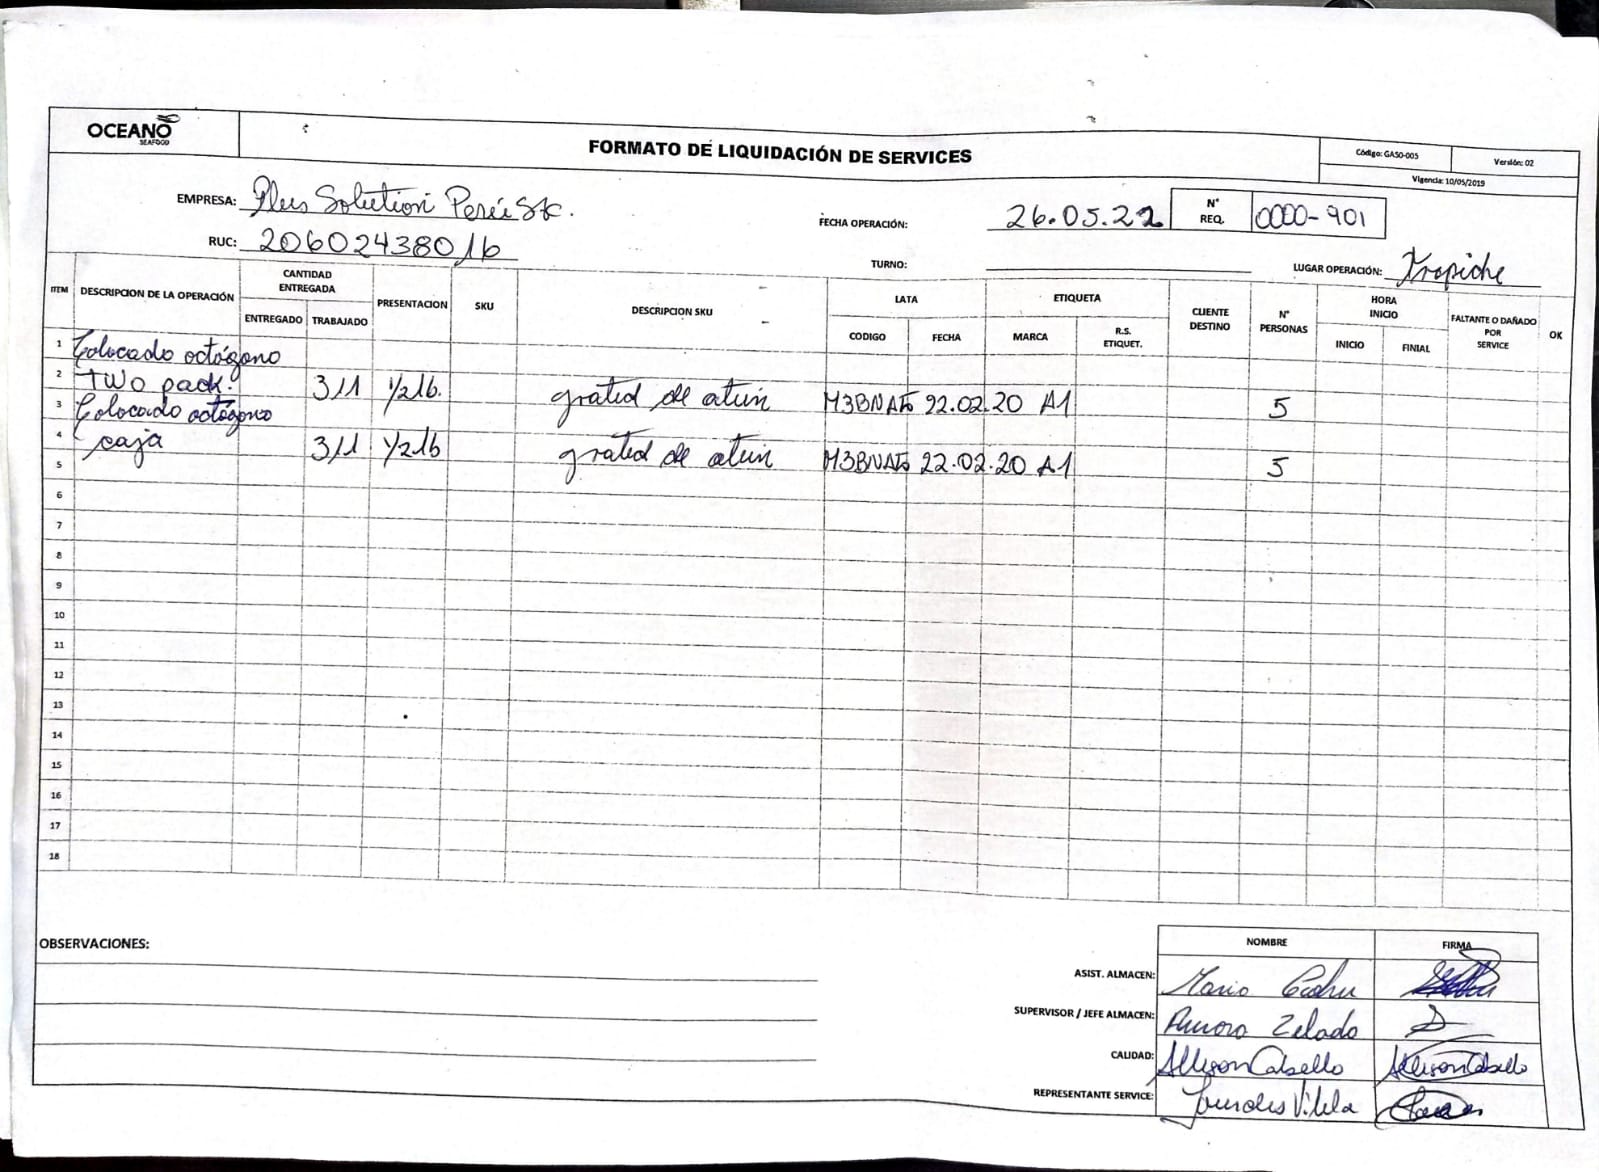 OCEANO
SEAFOOD
FORMATO DE LIQUIDACIÓN DE SERVICES
Código: GASO-005
Versión: 02
Vigencia: 10/05/2019
EMPRESA: Plus Solution Perú
FECHA OPERACIÓN: 26.05.22
N° REQ. 0000-901
RUC: 20602438016
TURNO:
LUGAR OPERACIÓN: Trapiche
ITEM DESCRIPCION DE LA OPERACIÓN CANTIDAD ENTREGADA PRESENTACION SKU DESCRIPCION SKU LATA ETIQUETA CLIENTE DESTINO N° PERSONAS HORA INICIO FALTANTE O DAÑADO POR SERVICE OK
ENTREGADO TRABAJADO CODIGO FECHA MARCA R.S. ETIQUET. INICIO FINIAL
1 Colocado octógono
2 TWO pack. 311 1/2 lb. grated de atún 22.02.20 A1 5
3 Colocado octógono
4 caja 311 1/2 lb grated de atún 22.02.20 A1 5
5
6
7
8
9
10
11
12
13
14
15
16
17
18
OBSERVACIONES:
NOMBRE FIRMA
ASIST. ALMACEN: Mario
SUPERVISOR / JEFE ALMACEN: Zelado
CALIDAD: Allison Cabello Allison Cabello
REPRESENTANTE SERVICE: Lourdes Vilela